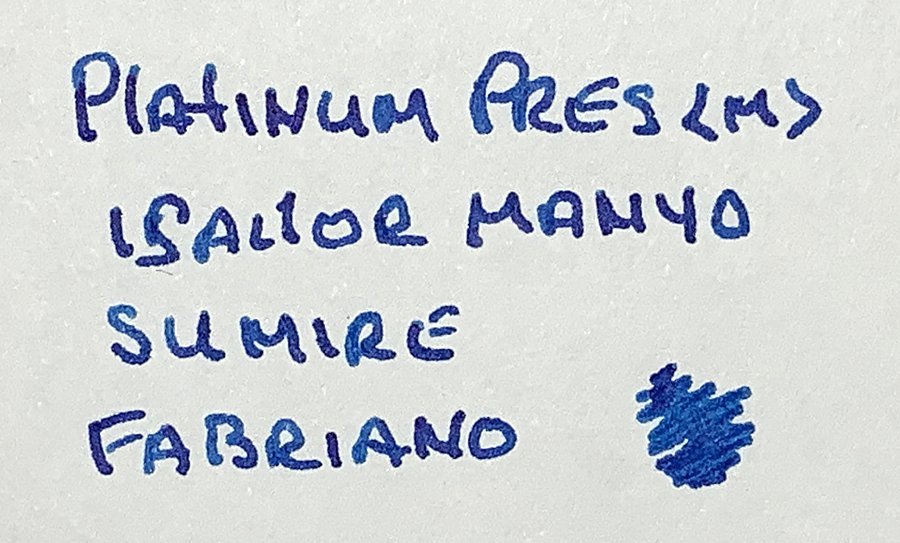 PLATINUM PRES <M>
\SAILOR MANYO
SUMIRE
FABRIANO